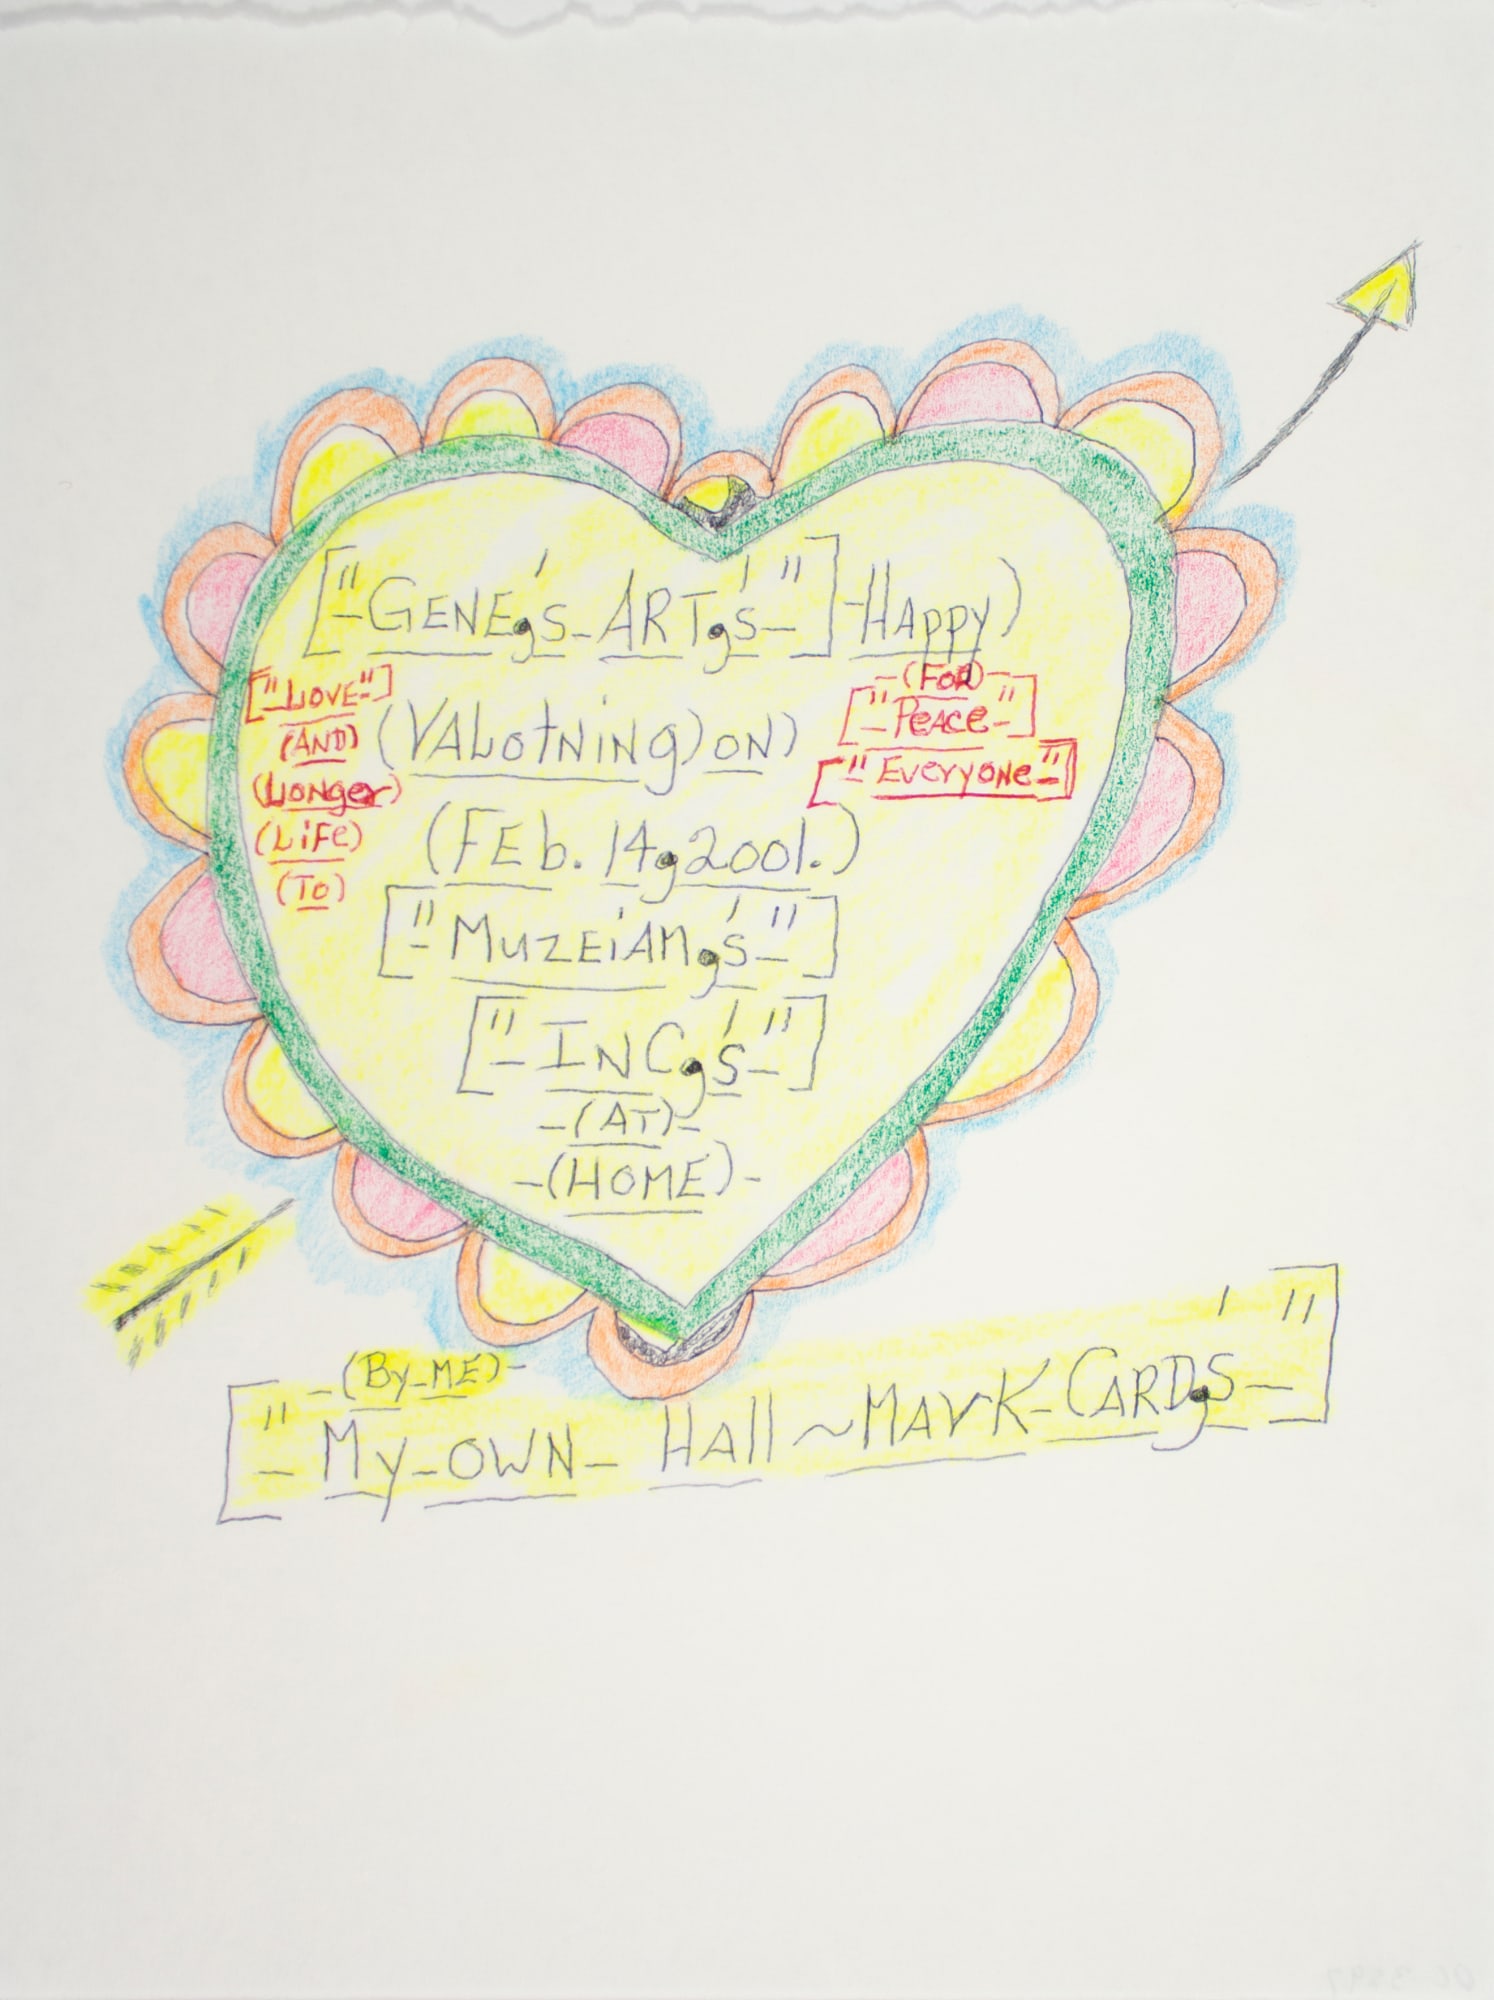 ["-GENE,'s-ART,'s-"]-HAppy)
["LOVE"]
(AND)
(LONger)
(LiFe)
(To)
(VALotNiNg) ON)
-(FOR)-
["-PeAce-"]
["-EveryoNe-"]
(FEb. 14,2001.)
["-MUZEiAM,'s-"]
["-INC,'s-"]
-(AT)-
-(HOME)-
-(By-ME)-
["-My-OWN- HAll~MArK-CARD,'S-"]